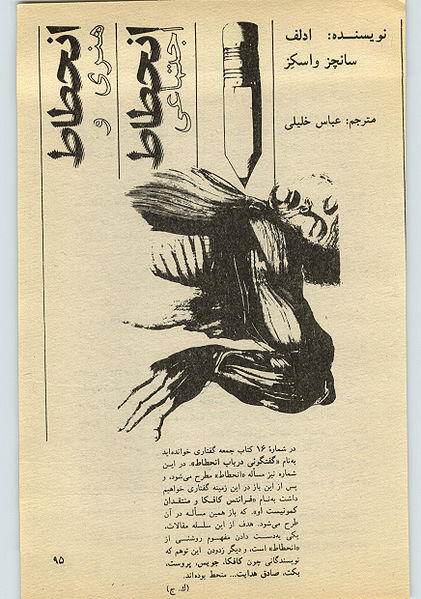 نویسنده: ادلف
سانچز واسکز
مترجم: عباس خلیلی
انحطاط
هنری و
انحطاط
اجتماعی
در شمارهٔ ۱۶ کتاب جمعه گفتاری خوانده‌اید
به‌نام «گفتگوئی درباب انحطاط». در این
شماره نیز مسأله «انحطاط» مطرح می‌شود، و
پس از این باز در این زمینه گفتاری خواهیم
داشت به‌نام «فرانتس کافکا و منتقدان
کمونیست او». که باز همین مسأله در آن
طرح می‌شود. هدف از این سلسله مقالات،
یکی به‌دست دادن مفهوم روشنی از
«انحطاط» است، و دیگر زدودن این توهم که
نویسندگانی چون کافکا، جویس، پروست،
بکت، صادق هدایت... منحط بوده‌اند.
(ك. ج)
۹۵